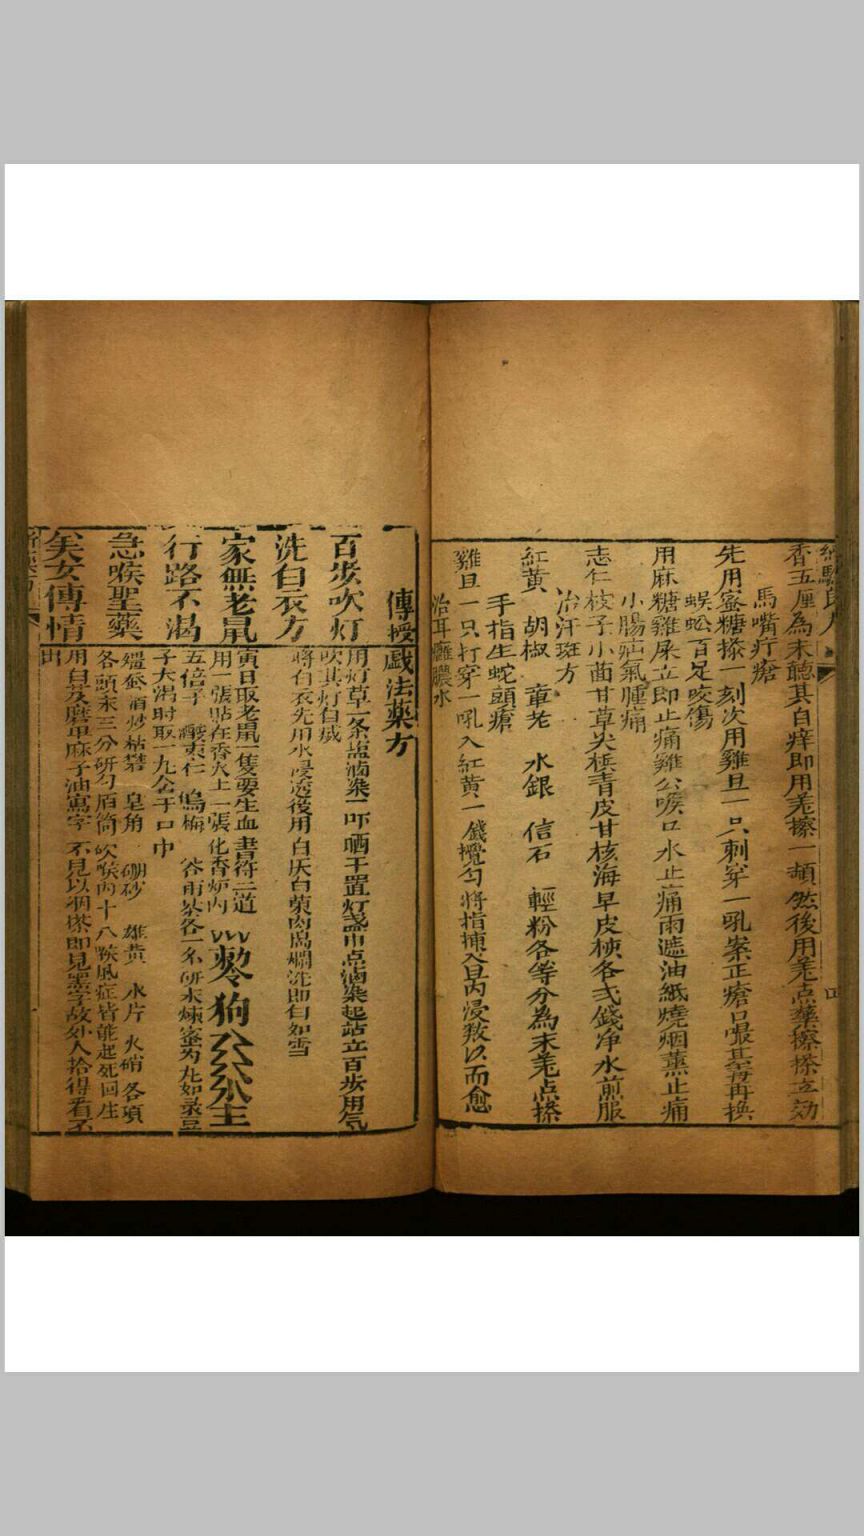 香五厘為末聽其自痒即用羌搽一頓然後用羌点藥擦搽立効
馬嘴疔瘡
先用蜜糖搽一刻次用雞旦一只刺穿一吼案正瘡口嘬其毒再换
蜈蚣百足咬傷
用麻糖雞屎立即止痛雞公喉口水止痛雨遮油紙燒烟薰止痛
小腸疝氣腫痛
志仁枝子小茴甘草尖槟青皮甘核海早皮桋各弍錢净水煎服
治汗斑方
紅黄 胡椒 章茏 水銀 信石 輕粉各等分為末羌点搽
手指生蛇頭瘡
雞旦一只打穿一吼入紅黄一錢攪匀將指揷入旦内浸数次而愈
治耳癰膿水
傳授戯法藥方
百步吹灯
用灯草一条塩滷染一吓晒干置灯盏巾点滷染起站立百步用氣
吹其灯自威
洗白衣方
將白衣先用水浸透後用白灰白菓肉搗爛洗即白如雪
家無老鼠
寅日取老鼠一隻要生血書符二道
用一張貼在香火上一張化香炉内
勅令狗
行路不渴
五倍子 酸枣仁 烏梅 谷雨茶各一名研末煉蜜为九如录豆
子大渴时取一九含于口中
急喉聖藥
殭蚕酒炒枯礬 皂角 硼砂 雄黄 水片 火硝各項
各頭末三分研匀盾筒吹喉内十八喉風症皆能起死回生
矣女傳情
用白芨磨草麻子油寫字不見以烟搽即見墨字故妙人拾得看不
出